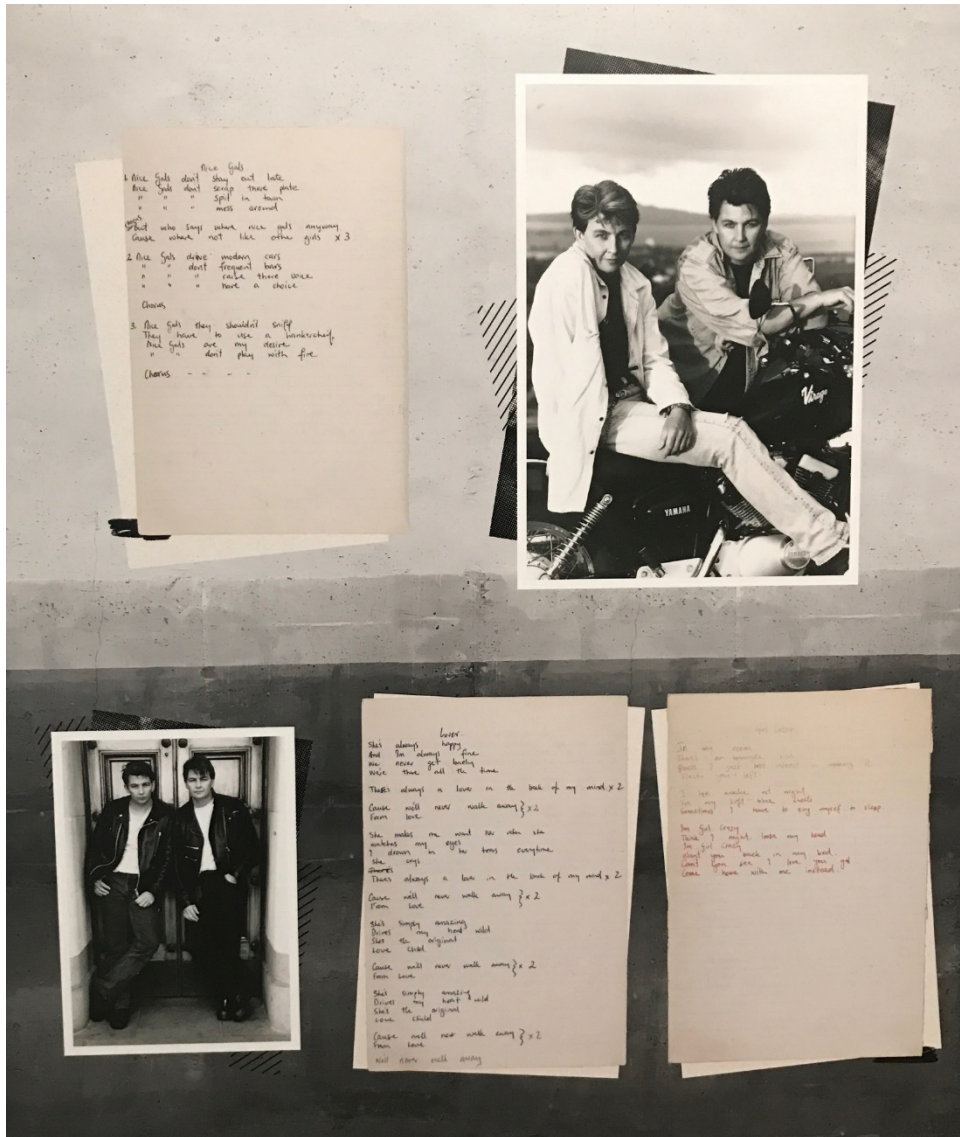 Nice Gals
1. Nice Gals don't stay out late
Nice Gals dont scrap there plate
" " " spit in town
" " " mess around
Chorus
But who says where nice gals anyway
Cause where not like other girls x 3
2. Nice Gals drive modern cars
" " dont frequent bars
" " " raise there voice
" " " have a choice
Chorus
3. Nice Gals they shouldn't sniff
They have to use a
Nice Gals are my desire
" " don't play with fire
Chorus - - - -
Virago
YAMAHA
Lover
She's always happy
And I'm always fine
We never get lonely
We're there all the time
There's always a lover in the back of my mind x 2
Cause well never walk away } x 2
From love
She makes me want her when she
watches my eyes
I drown in her everytime
She says
Theres always a lover in the back of my mind x 2
Cause well never walk away } x 2
From love
She's simply amazing
Drives my heart wild
Shes the original
Love child
Cause well never walk away } x 2
From love
She's simply amazing
Drives my heart wild
She's the original
Love child
Cause well never walk away } x 2
From love
Well never walk away
In my room
I lye awake all night
Sometimes have to cry myself a sleep
I'm Girl Crazy
Think I might loose my head
I'm Girl Crazy
want you back in my bed
Cant you see I love you gal
Come home with me instead